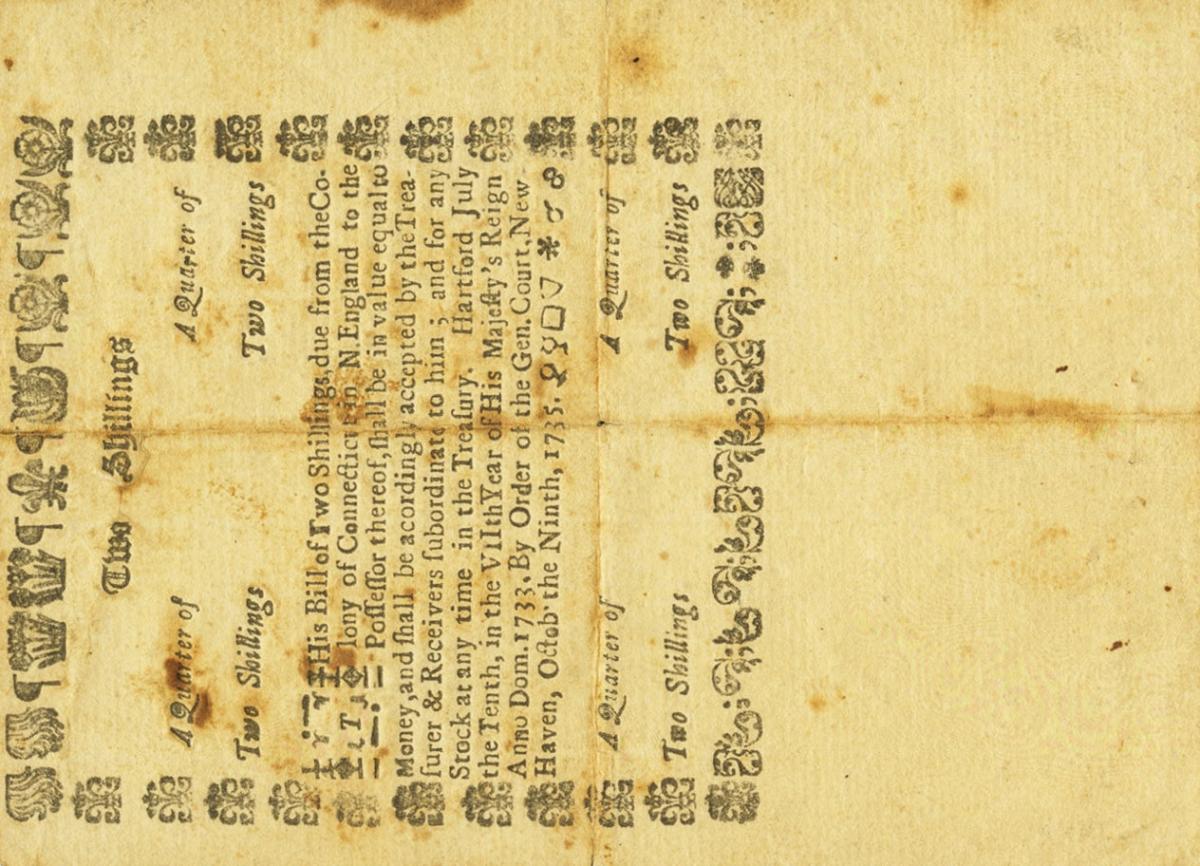 Two Shillings
A Quarter of A Quarter of
Two Shillings Two Shillings
THis Bill of Two Shillings, due from the Co-
lony of Connecticut in N. England to the
Poſſeſſor thereof, ſhall be in value equal to
Money, and ſhall be acordingly accepted by the Trea-
ſurer & Receivers ſubordinate to him ; and for any
Stock at any time in the Treaſury. Hartford July
the Tenth, in the VIIth Year of His Majeſty's Reign
Anno Dom. 1733. By Order of the Gen. Court. New-
Haven, Octob' the Ninth, 1735.
A Quarter of A Quarter of
Two Shillings Two Shillings